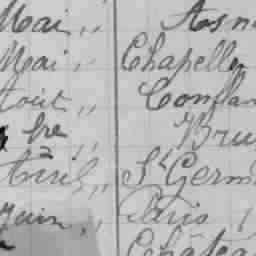 Mai „ Asni
Mai „ Chapelle
Août „ Conflan
bre „ Bru
Avril „ St Germ
Juin „ Paris
Châtea